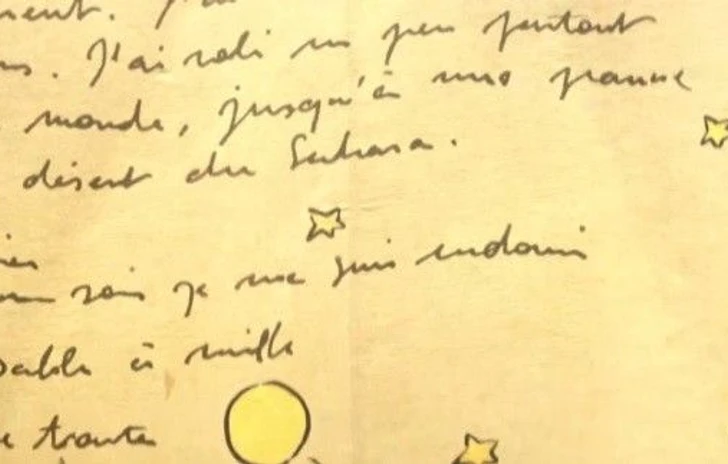 ment. J'ai
ns. J'ai volé un peu partout
monde, jusqu'à une panne
désert du Sahara.
ier
soir je me suis endormi
sable à mille
e toute